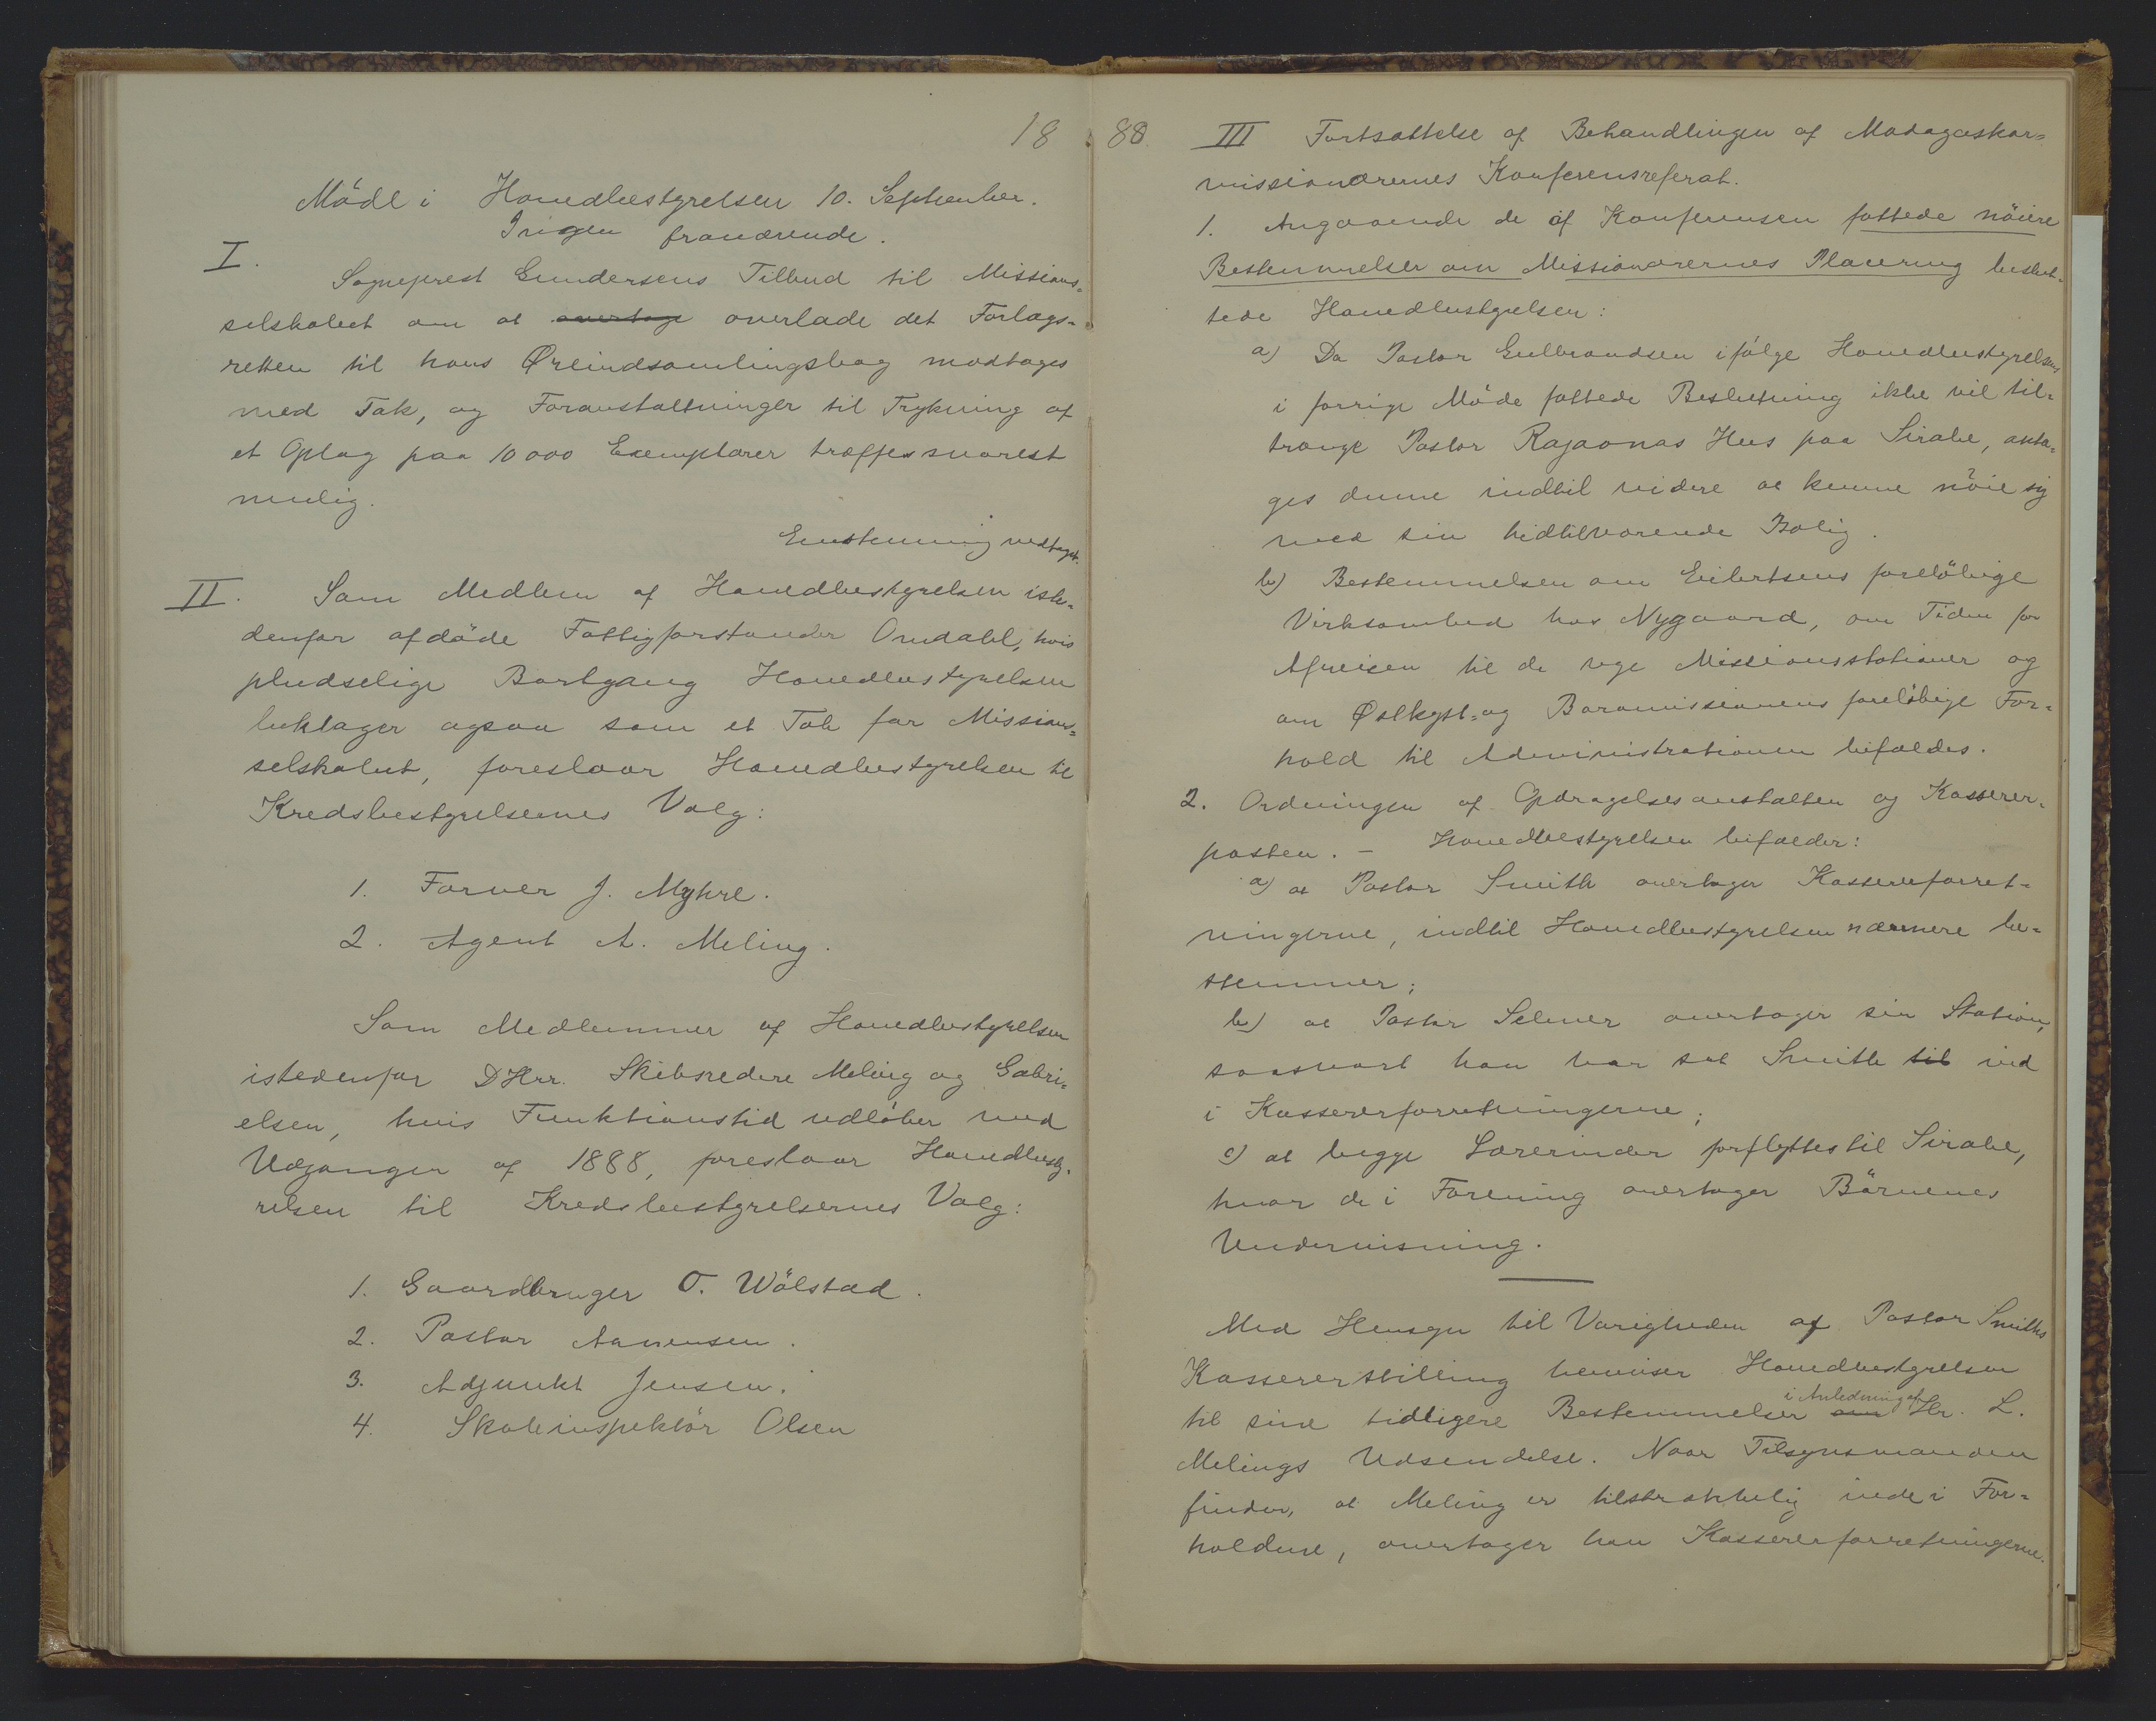 18
Möde i Hovedbestyrelsen 10. September.
Ingen fraværende.
I.
Sogneprest Gundersens Tilbud til Missions=
selskabet om at overtage overlade det Forlags-
retten til hans Øreindsamlingsbog modtages
med Tak, og Foranstaltninger til Trykning af
et Oplag paa 10 000 Exemplarer træffes snarest
mulig.
Enstemmig vedtaget.
II. Som Medlem af Hovedbestyrelsen iste-
denfor afdöde Fattigforstander Omdahl, hvis
pludselige Bortgang Hovedbestyrelsen
beklager ogsaa som et Tab for Missions=
selskabet, foreslaar Hovedbestyrelsen til
Kredsbestyrelsernes Valg:
1. Farver J. Myhre.
2. Agent A. Meling.
Som Medlemmer af Hovedbestyrelsen
istedenfor DHrr. Skibsredere Meling og Gabri=
elsen, hvis Funktionstid udlöber med
Udgangen af 1888, foreslaar Hovedbesty-
relsen til Kredsbestyrelsernes Valg:
1. Gaardbruger O. Wölstad.
2. Pastor Aanensen.
3. Adjunkt Jensen.
4. Skoleinspektör Olsen
88.
III Fortsættelse af Behandlingen af Madagaskar=
missionærernes Konferensreferat.
1. Angaaende de af Konferensen fattede nöiere
Bestemmelser om Missionærernes Placering beslut-
tede Hovedbestyrelsen:
a) Da Pastor Gulbrandsen ifölge Hovedbestyrelsens
i forrige Möde fattede Beslutning ikke vil til-
trænge Pastor Rajaonas Hus paa Sirabe, anta-
ges denne indtil videre at kunne nöie sig
med sin hidtilværende Bolig.
b) Bestemmelsen om Eilertsens forelöbige
Virksomhed hos Nygaard, om Tiden for
Afreisen til de nye Missionsstationer og
om Østkyst=og Baramissionens forelöbige For=
hold til Administrationen bifaldes.
2. Ordningen af Opdragelsesanstalten og Kasserer-
posten. – Hovedbestyrelsen bifalder:
a) at Pastor Smith overtager Kassererforret-
ningerne, indtil Hovedbestyrelsen nærmere be-
stemmer;
b) at Pastor Selmer overtager sin Station,
saasnart han har sat Smith til ind
i Kassererforretningerne;
c) at begge Lærerinder forflyttes til Sirabe,
hvor de i Forening overtager Börnenes
Undervisning.
Med Hensyn til Varigheden af Pastor Smiths
Kassererstilling henviser Hovedbestyrelsen
til sine tidligere Bestemmelser om i Anledning af Hr. L.
Melings Udsendelse. Naar Tilsynsmanden
finder, at Meling er tilstrækkelig inde i For=
holdene, overtager han Kassererforretningerne.